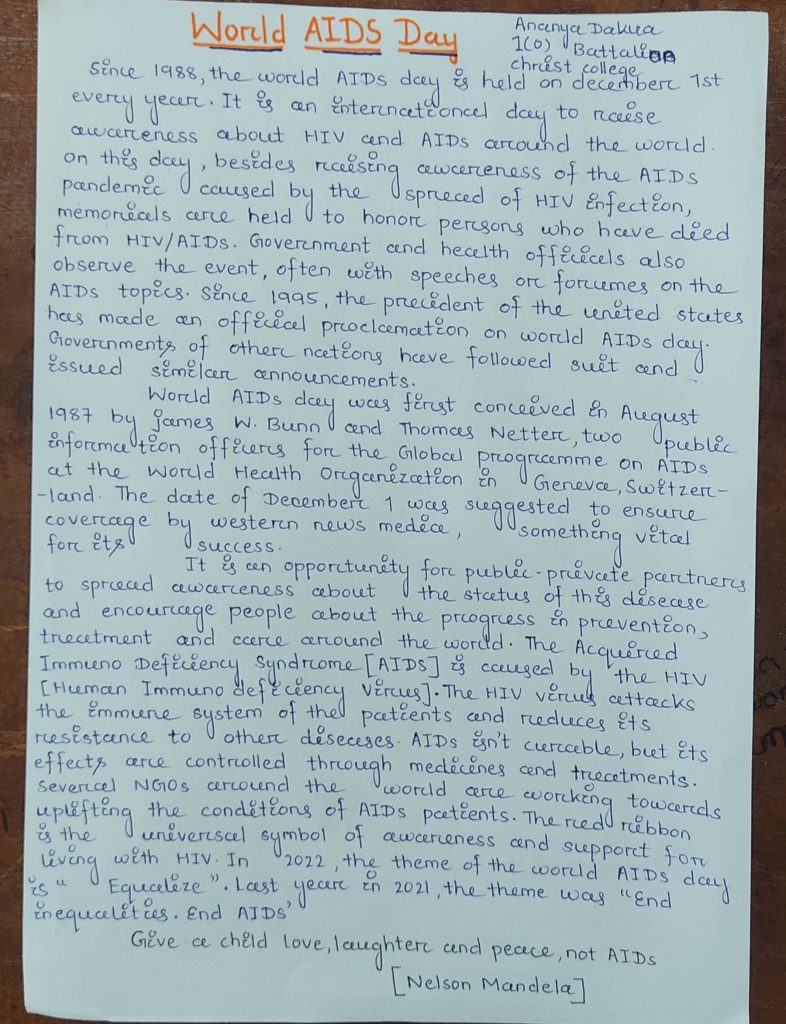 World AIDS Day
Ananya Dakua
1(O) Battalion
christ college
Since 1988, the world AIDs day is held on december 1st
every year. It is an international day to raise
awareness about HIV and AIDs around the world.
on this day, besides raising awareness of the AIDs
pandemic caused by the spread of HIV infection,
memorials are held to honor persons who have died
from HIV/AIDs. Government and health officials also
observe the event, often with speeches or forumes on the
AIDs topics. Since 1995, the precident of the united states
has made an official proclamation on world AIDs day.
Governments of other nations have followed suit and
issued similar announcements.
World AIDs day was first conceived in August
1987 by james W. Bunn and Thomas Netter, two public
information officers for the Global programme on AIDs
at the World Health Organization in Geneva, Switzer-
-land. The date of December 1 was suggested to ensure
coverage by western news media, something vital
for its success.
It is an opportunity for public-private partners
to spread awareness about the status of this disease
and encourage people about the progress in prevention,
treatment and care around the world. The Acquired
Immuno Deficiency Syndrome [AIDS] is caused by the HIV
[Human Immuno deficiency Virus]. The HIV virus attacks
the immune system of the patients and reduces its
resistance to other diseases. AIDs isn't curable, but its
effects are controlled through medicines and treatments.
several NGOs around the world are working towards
uplifting the conditions of AIDs patients. The red ribbon
is the universal symbol of awareness and support for
living with HIV. In 2022, the theme of the world AIDs day
is " Equalize". Last year in 2021, the theme was "End
inequalities. End AIDs'
Give a child love, laughter and peace, not AIDs
[Nelson Mandela]